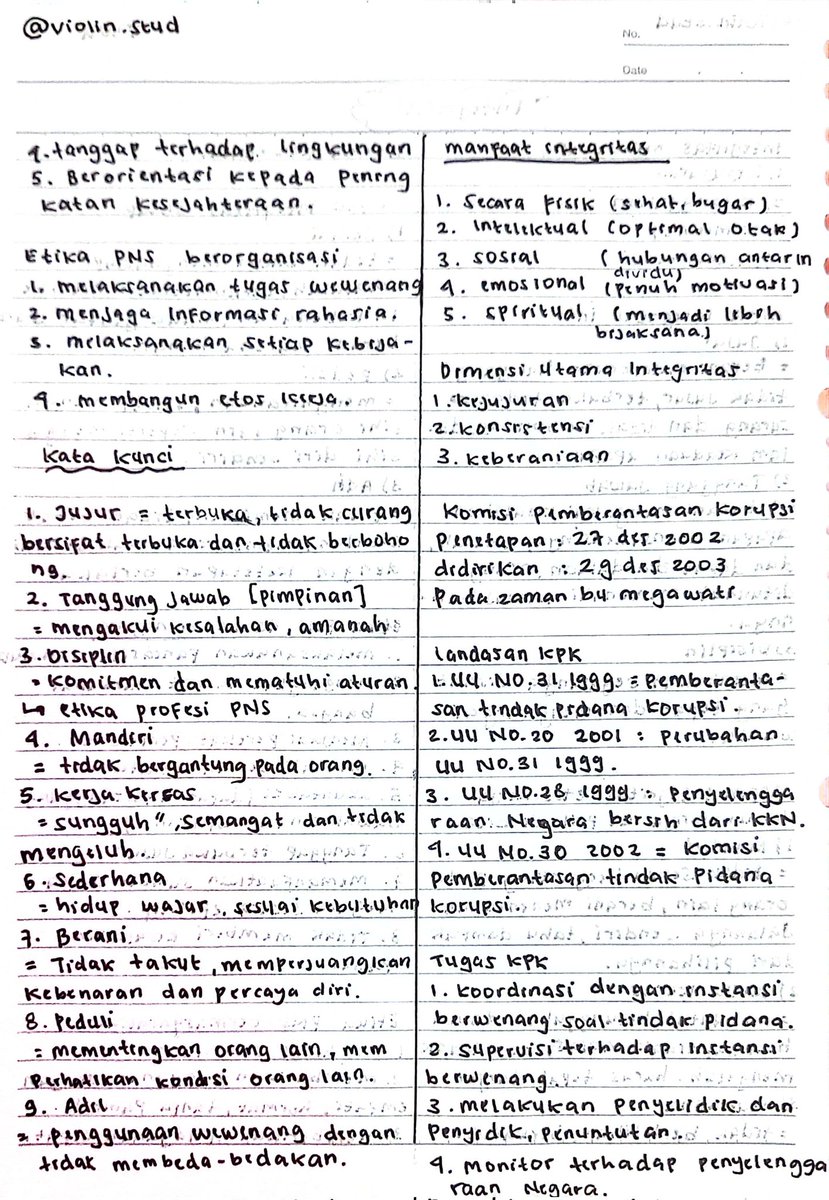 @violin.stud
No.
Date
4. tanggap terhadap lingkungan
5. Berorientasi kepada pening
katan kesejahteraan.
Etika PNS berorganisasi
1. melaksanakan tugas wewenang
2. menjaga informasi rahasia.
3. melaksanakan setiap kebija-
kan.
4. membangun etos kerja.
kata kunci
1. Jujur = terbuka, tidak curang
bersifat terbuka dan tidak berboho
ng.
2. Tanggung Jawab [pimpinan]
= mengakui kesalahan, amanah
3. Disiplin
= komitmen dan mematuhi aturan.
↳ etika profesi PNS
4. Mandiri
= tidak bergantung pada orang.
5. kerja keras
= sungguh", semangat dan tidak
mengeluh
6. Sederhana
= hidup wajar, sesuai kebutuhan
7. Berani
= Tidak takut, memperjuangkan
kebenaran dan percaya diri.
8. Peduli
= mementingkan orang lain, mem
perhatikan kondisi orang lain.
9. Adil
= penggunaan wewenang dengan
tidak membeda-bedakan.
manfaat integritas
1. Secara fisik (sehat, bugar)
2. Intelektual (optimal otak)
3. sosial (hubungan antarin
dividu)
4. emosional (penuh motivasi)
5. spiritual (menjadi lebih
bijaksana)
Dimensi Utama Integritas
1. kejujuran
2. konsistensi
3. keberanian
Komisi pemberantasan korupsi
penetapan : 27 des 2002
didirikan : 29 des 2003
pada zaman bu megawati
landasan KPK
1. UU NO. 31 1999 = pemberanta-
san tindak pidana korupsi.
2. UU NO. 20 2001 : perubahan
UU NO. 31 1999.
3. UU NO. 28 1999 : penyelengga
raan Negara bersih dari KKN.
4. UU NO. 30 2002 = komisi
pemberantasan tindak pidana
korupsi
Tugas KPK
1. koordinasi dengan instansi
berwenang soal tindak pidana.
2. supervisi terhadap instansi
berwenang
3. melakukan penyelidik dan
penyidik, penuntutan.
4. monitor terhadap penyelengga
raan Negara.